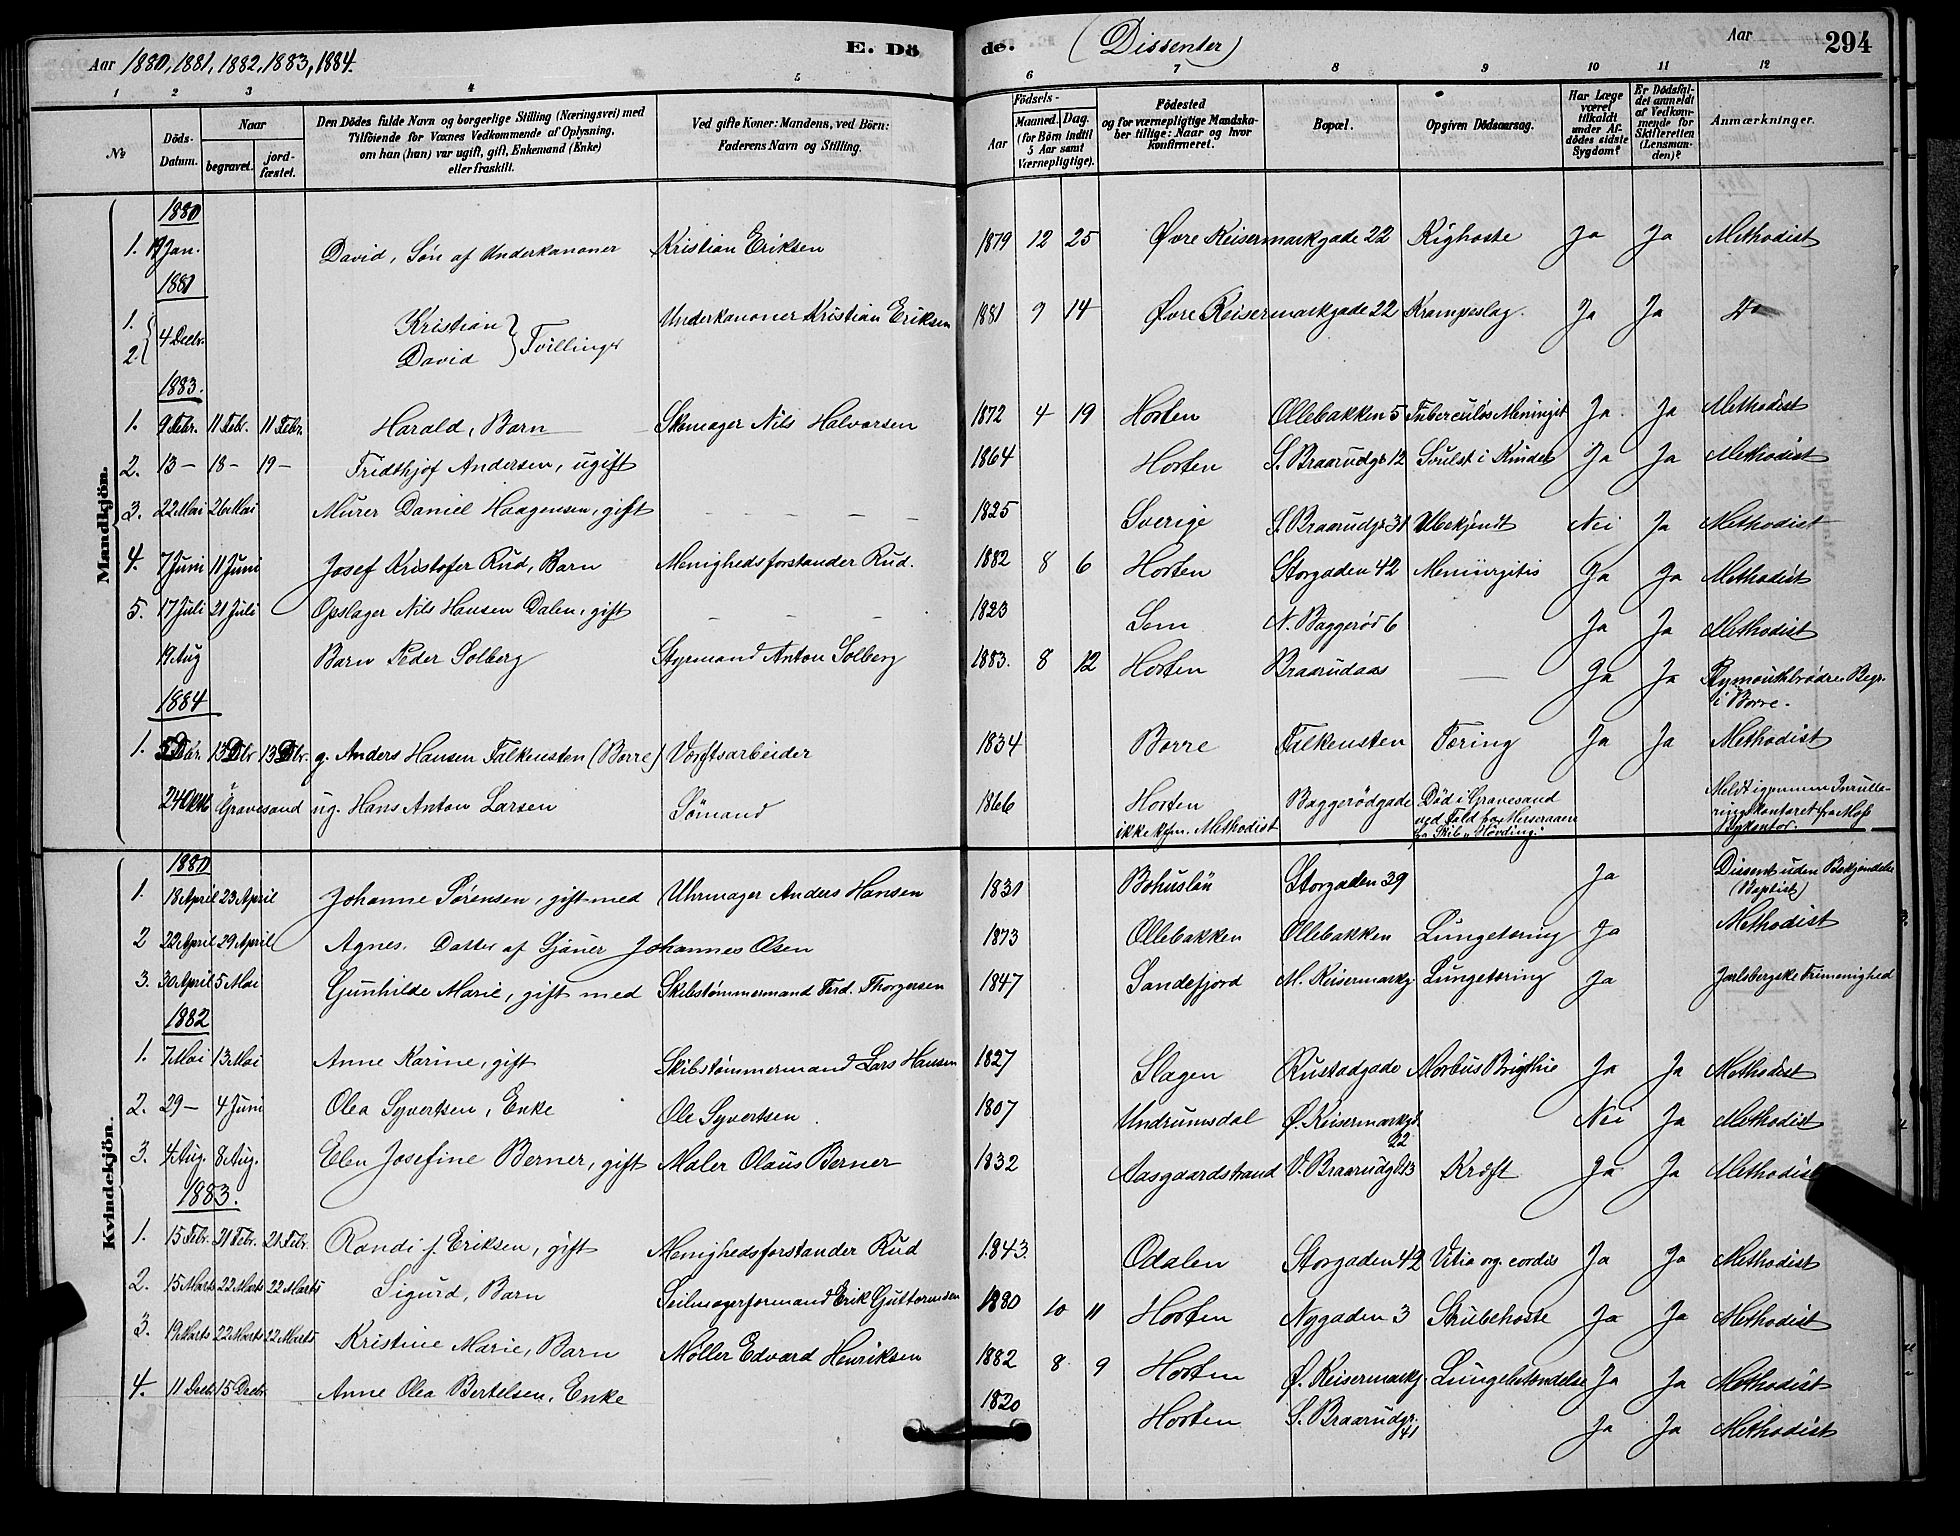 Aar 1880, 1881, 1882, 1883, 1884. E. Dö de. (Dissenter) Aar 294
1 2 3 4 5 6 7 8 9 10 11 12
No Döds-Datum. Naar begravet. jordfæstet. Den Dödes fulde Navn og borgerlige Stilling (Næringsvei) med Tilföiende for Voxnes Vedkommende af Oplysning, om han (hun) var ugift, gift, Enkemand (Enke) eller fraskilt. Ved gifte Koner: Mandens, ved Börn: Faderens Navn og Stilling. Födsels- Aar Maaned. Dag. (for Börn indtil 5 Aar samt Værnepligtige). Födested og for værnepligtige Mandskaber tillige: Naar og hvor konfirmeret. Bopæl. Opgiven Dödsaarsag. Har Læge været tilkaldt under Afdödes sidste Sygdom? Er Dödsfaldet anmeldt af Vedkommende for Skifteretten (Lensmanden)? Anmærkninger.
Mandkjön.
1880
1. 19 Jan. David, Søn af Underkanoner Kristian Eriksen 1879 12 25 Øvre Keisermarkgade 22 Kighoste Ja Ja Methodist
1881
1. 2. 4 Decbr. Kristian David } Tvillinger Underkanoner Kristian Eriksen 1881 9 14 Øvre Keisermarkgade 22 Krampeslag. Ja Ja Do
1883.
1. 9 Febr. 11 Febr. 11 Febr. Harald, Barn Skomager Nils Halvorsen 1872 4 19 Horten Ollebakken 5 Tuberculøs Meningit Ja Ja Methodist
2. 13 – 18 – 19 – Fridthjof Andersen, ugift 1864 Horten S. Braarudgs 12 Svulst i Kinden Ja Ja Methodist
3. 22 Mai 26 Mai Murer Daniel Haagensen, gift – – – – – 1825 Sverige S. Braarudgs 31 Ubekjendt Nei Ja Methodist
4. 7 Juni 11 Juni Josef Kristofer Rud, Barn Menighedsforstander Rud. 1882 8 6 Horten Storgaden 42 Meniirgitis Ja Ja Methodist
5. 17 Juli 21 Juli Opslager Nils Hansen Dalen, gift – – 1823 Sem N. Baggerød 6 Ja Ja Methodist
19 Aug Barn Peder Solberg Styrmand Anton Solberg 1883. 8 12 Horten Braarudaas — Ja Ja Plymouthbrødre Begr. i Borre.
1884
1. 13 Dbr 13 Dbr. g. Anders Hansen Falkensten (Borre) Værftsarbeider 1834 Borre Falkensten Tæring Ja Ja Methodist
24 Oktb Gravesand ug. Hans Anton Larsen Sømand 1866 Horten ikke kfm. Methodist Baggerödgade Död i Gravesand ved Fald fra Merseraaen paa Skib „Hövding". Meldt igjennem Inrulleringskontoret fra Moss
Kvindekjön.
1880
1. 18 April 23 April Johanne Sørensen, gift med Uhrmager Anders Hansen 1831 Bohuslän Storgaden 39 Ja Dissent uden Bekjendelse (Baptist)
2 22 April 29 April Agnes. Datter af Sjauer Johannes Olsen 1873 Ollebakken Ollebakken Lungetæring Ja Methodist
3. 30 April 5 Mai Gunhilde Marie, gift med Skibstømmermand Ferd. Thorgersen 1847 Sandefjord M. Keisermarkg Lungetæring Ja Jarlsbergske Frimenighed
1882
1. 7 Mai 13 Mai Anne Karine, gift Skibstømmermand Lars Hansen 1827 Slagen Rustadgade Morbus Brigthie Ja Ja Methodist
2. 29 – 4 Juni Olea Syvertsen, Enke Ole Syvertsen. 1807 Undrumsdal Ø. Keisermarkgd. 22 Nei Ja Methodist
3. 4 Aug. 8 Aug. Elen Josefine Berner, gift Maler Olaus Berner 1832 Aasgaardstrand V. Braarudgd 13 Kræft Ja Ja Methodist
1883.
1. 15 Febr. 21 Febr. 21 Febr. Randi f. Eriksen, gift Menighedsforstander Rud 1843. Odalen Storgaden 42 Vitia org. cordis Ja Ja Methodist
2. 15 Marts 22 Marts 22 Marts Sigurd, Barn Seilmagerformand Erik Guttormsen 1880 10 11 Horten Nygaden 3 Strubehoste Ja Ja Methodist
3. 19 Marts 22 Marts 22 Marts Kristine Marie, Barn Møller Edvard Henriksen 1882 8 9 Horten Ø. Keisermarkg. Lungebetændelse Ja Ja Methodist
4. 11 Decbr 15 Decbr. Anne Olea Bertelsen, Enke 1820 Horten S. Braarudgr. 41 Ja Ja Methodist